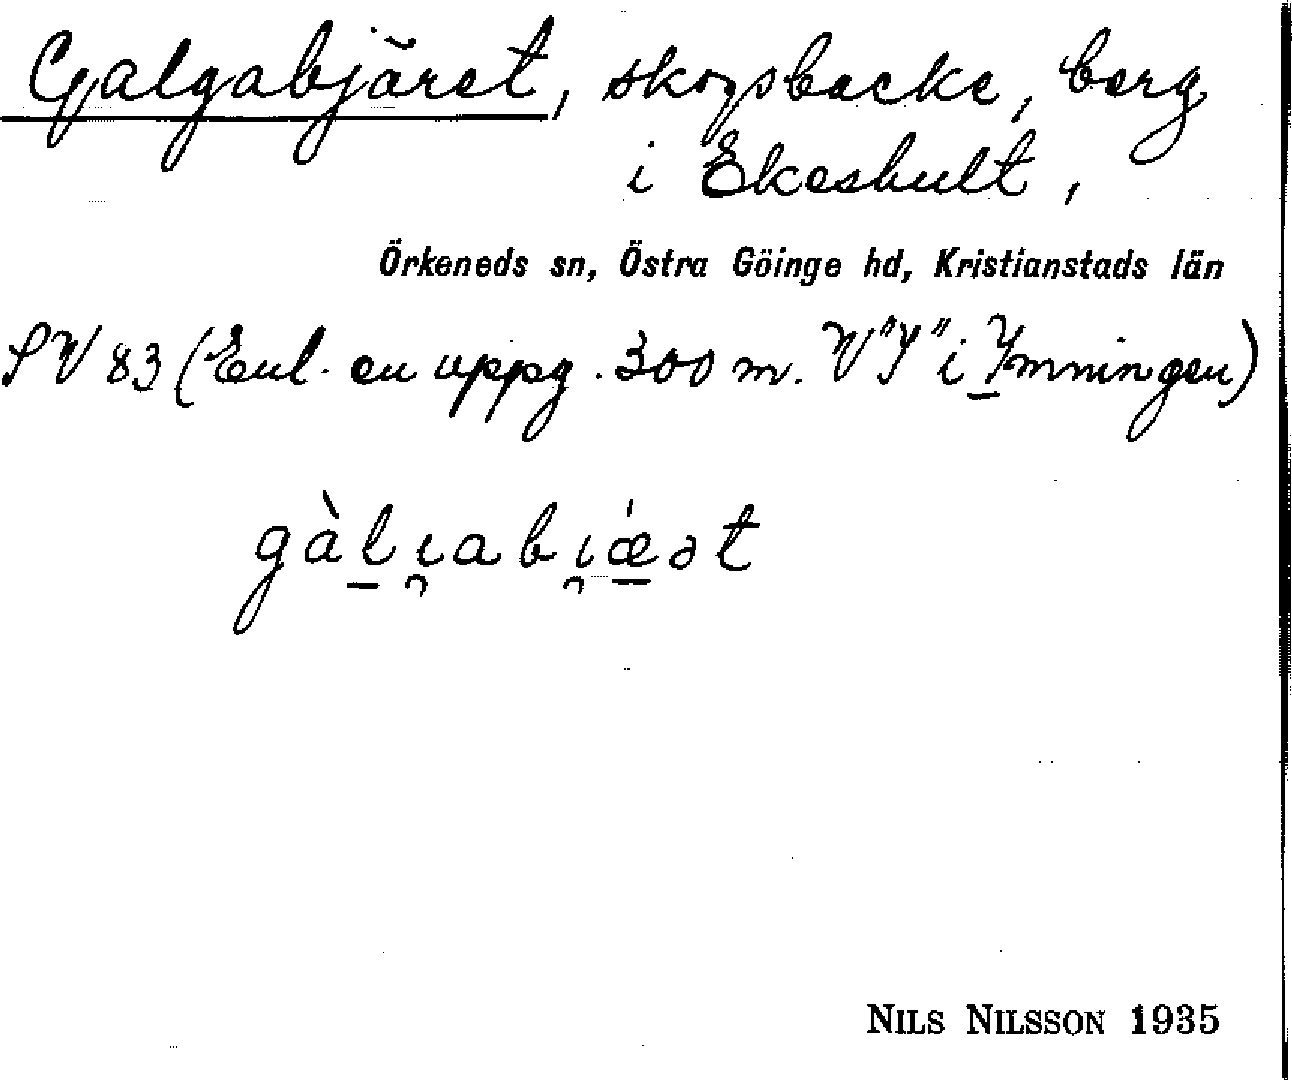 Galgabjäret, skogsbacke, berg
i Ekeshult,
Örkeneds sn, Östra Göinge hd, Kristianstads län
SV 83 (Enl. en uppg. 300 m. V "Y" i Ymningen)
gàl̠ı̯abı̯ǽ̠ət
NILS NILSSON 1935